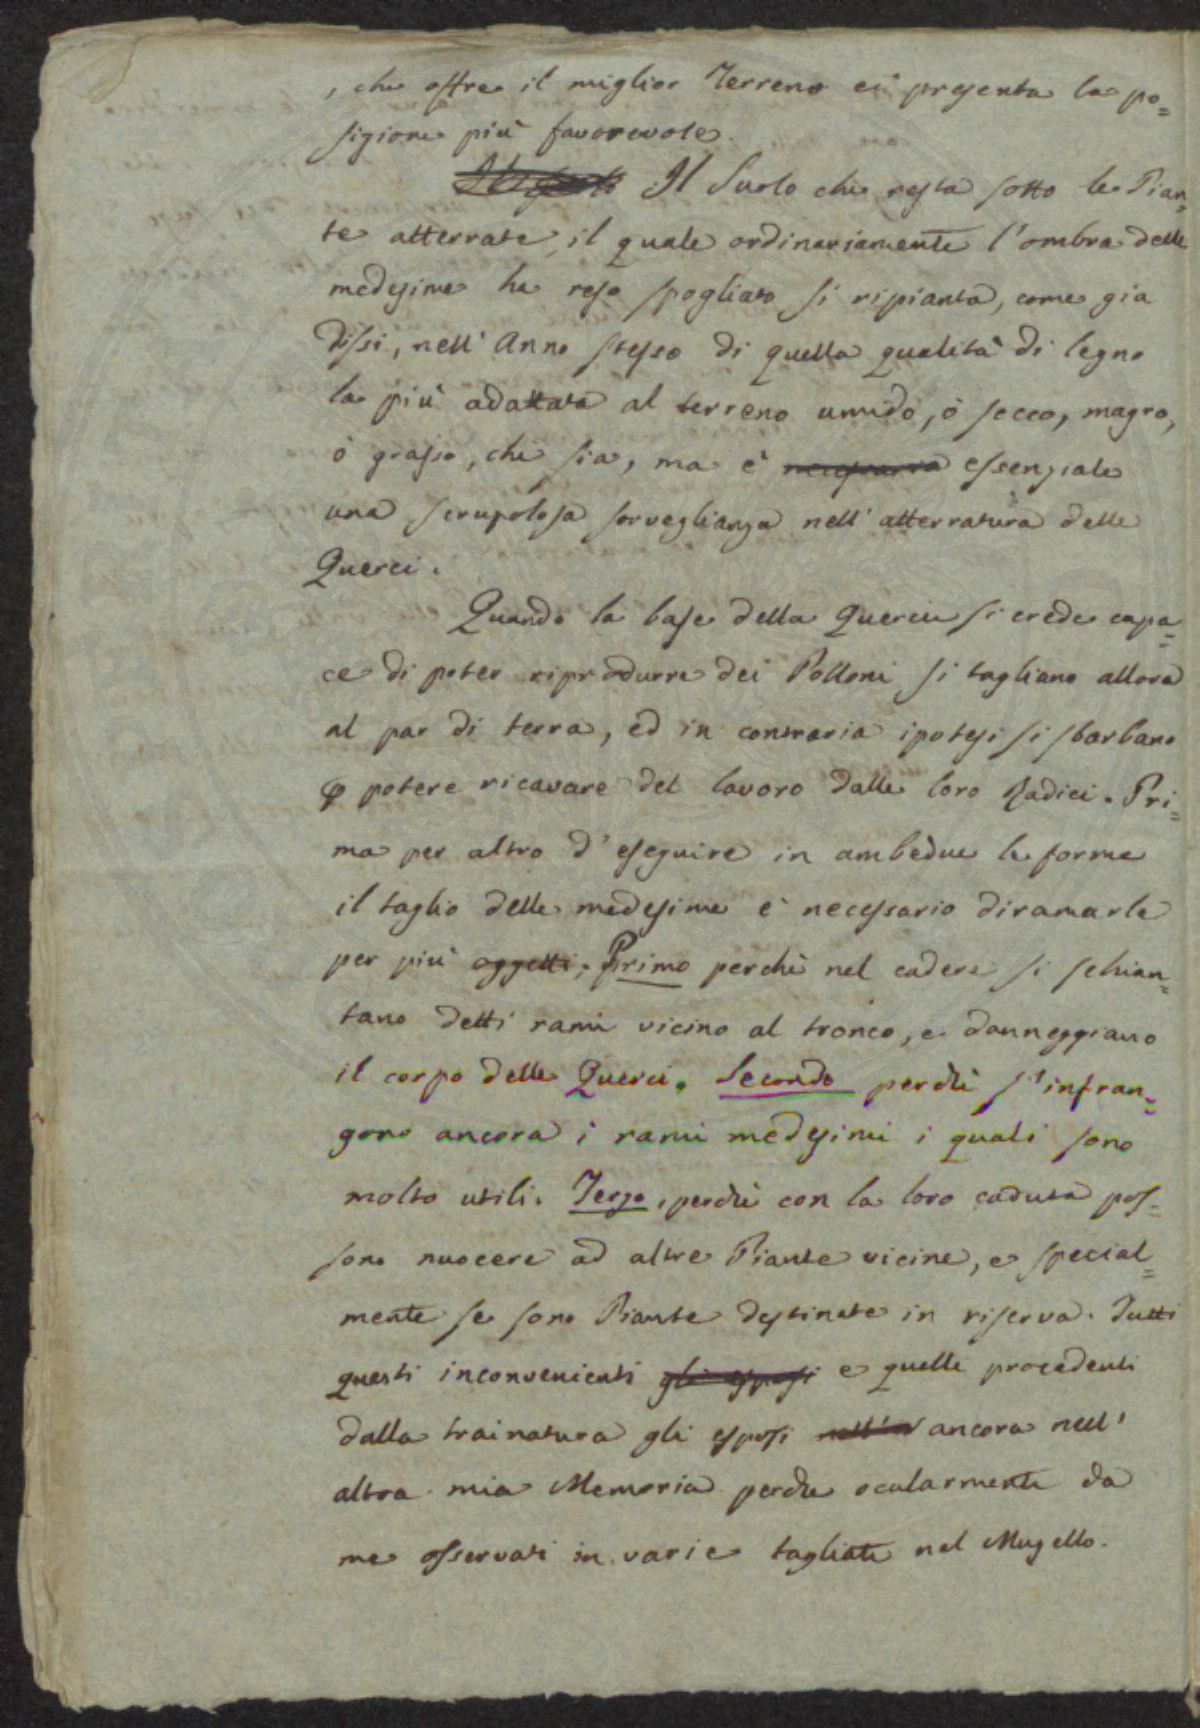 , che offre il miglior Terreno ci presenta la po=
sizione più favorevole.
Il Suolo che resta sotto le Pian=
te atterrate, il quale ordinariamente l'ombra delle
medesime ha reso spogliato si ripianta, come gia
dissi, nell'Anno stesso di quella qualità di legno
la più adattata al terreno umido, ò secco, magro,
ò grasso, che sia, ma è necessaria essenziale
una scrupolosa sorveglianza nell'atterratura delle
Querci.
Quando la base della Quercie si crede capa=
ce di poter riprodurre dei Polloni si tagliano allora
al par di terra, ed in contraria ipotesi si sbarbano
potere ricavare del lavoro dalle loro Radici. Pri=
ma per altro d'eseguire in ambedue le forme
il taglio delle medesime è necessario diramarle
per più oggetti; Primo perchè nel cadere si schian=
tano detti rami vicino al tronco, e danneggiano
il corpo delle Querci. Secondo perchè s'infran=
gono ancora i rami medesimi i quali sono
molto utili. Terzo, perchè con la loro caduta pos=
sono nuocere ad altre Piante vicine, e special=
mente se sono Piante destinate in riserva. Tutti
questi inconvenienti gli esposi e quelli procedenti
dalla trainatura gli esposi nell'a ancora nell'
altra mia Memoria perche ocularmente da
me osservati in varie tagliate nel Mugello.